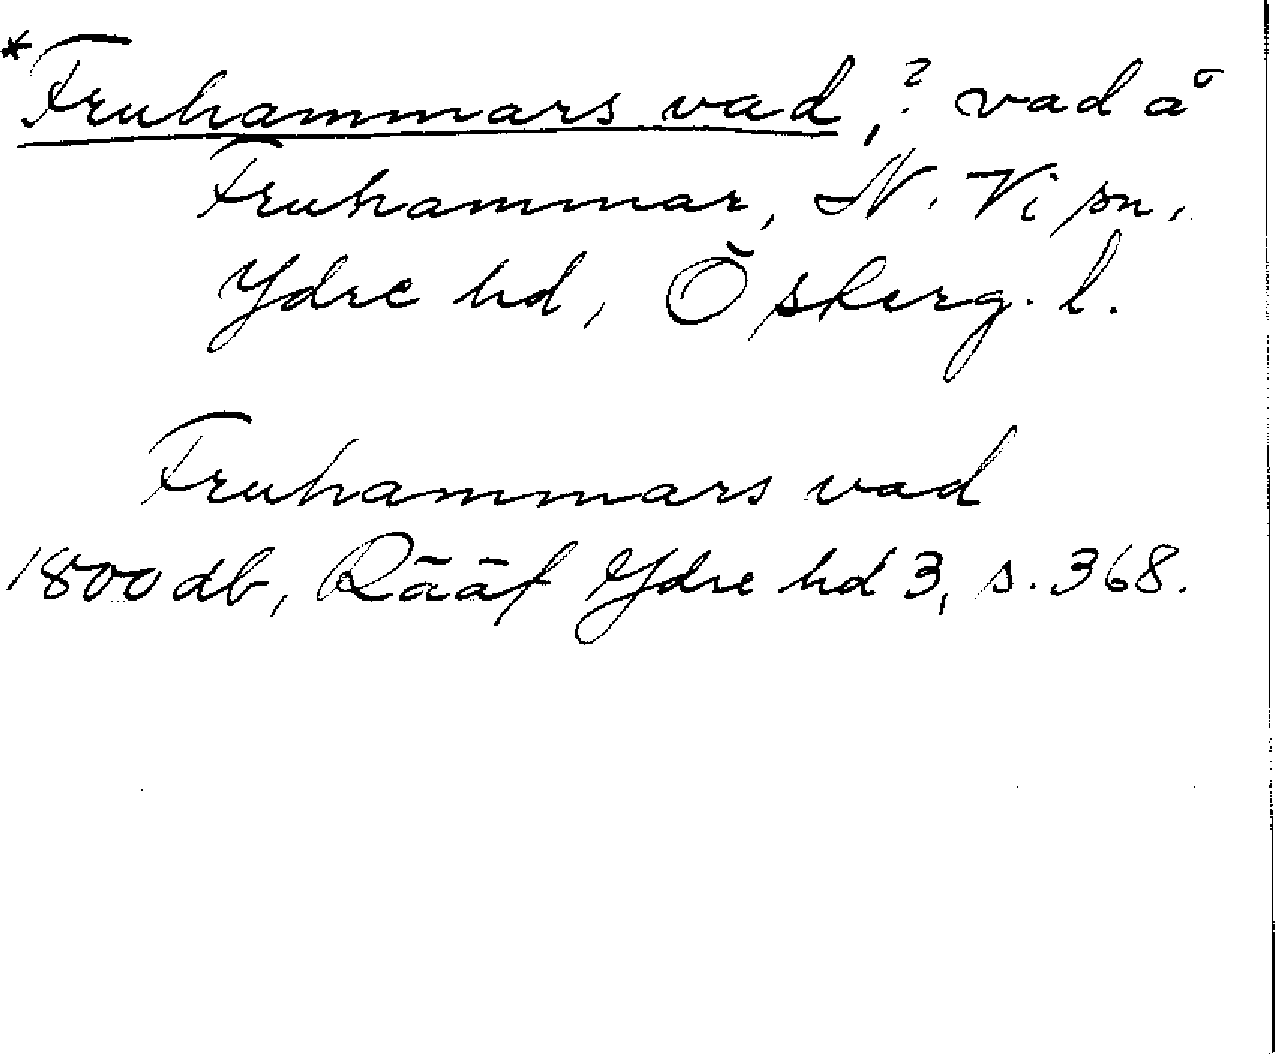 *Fruhammars vad, ? vad å
Fruhammar, N. Vi sn,
Ydre hd, Öskerg. l.
Fruhammars vad
1800 db, Rääf Ydre hd 3, s. 368.